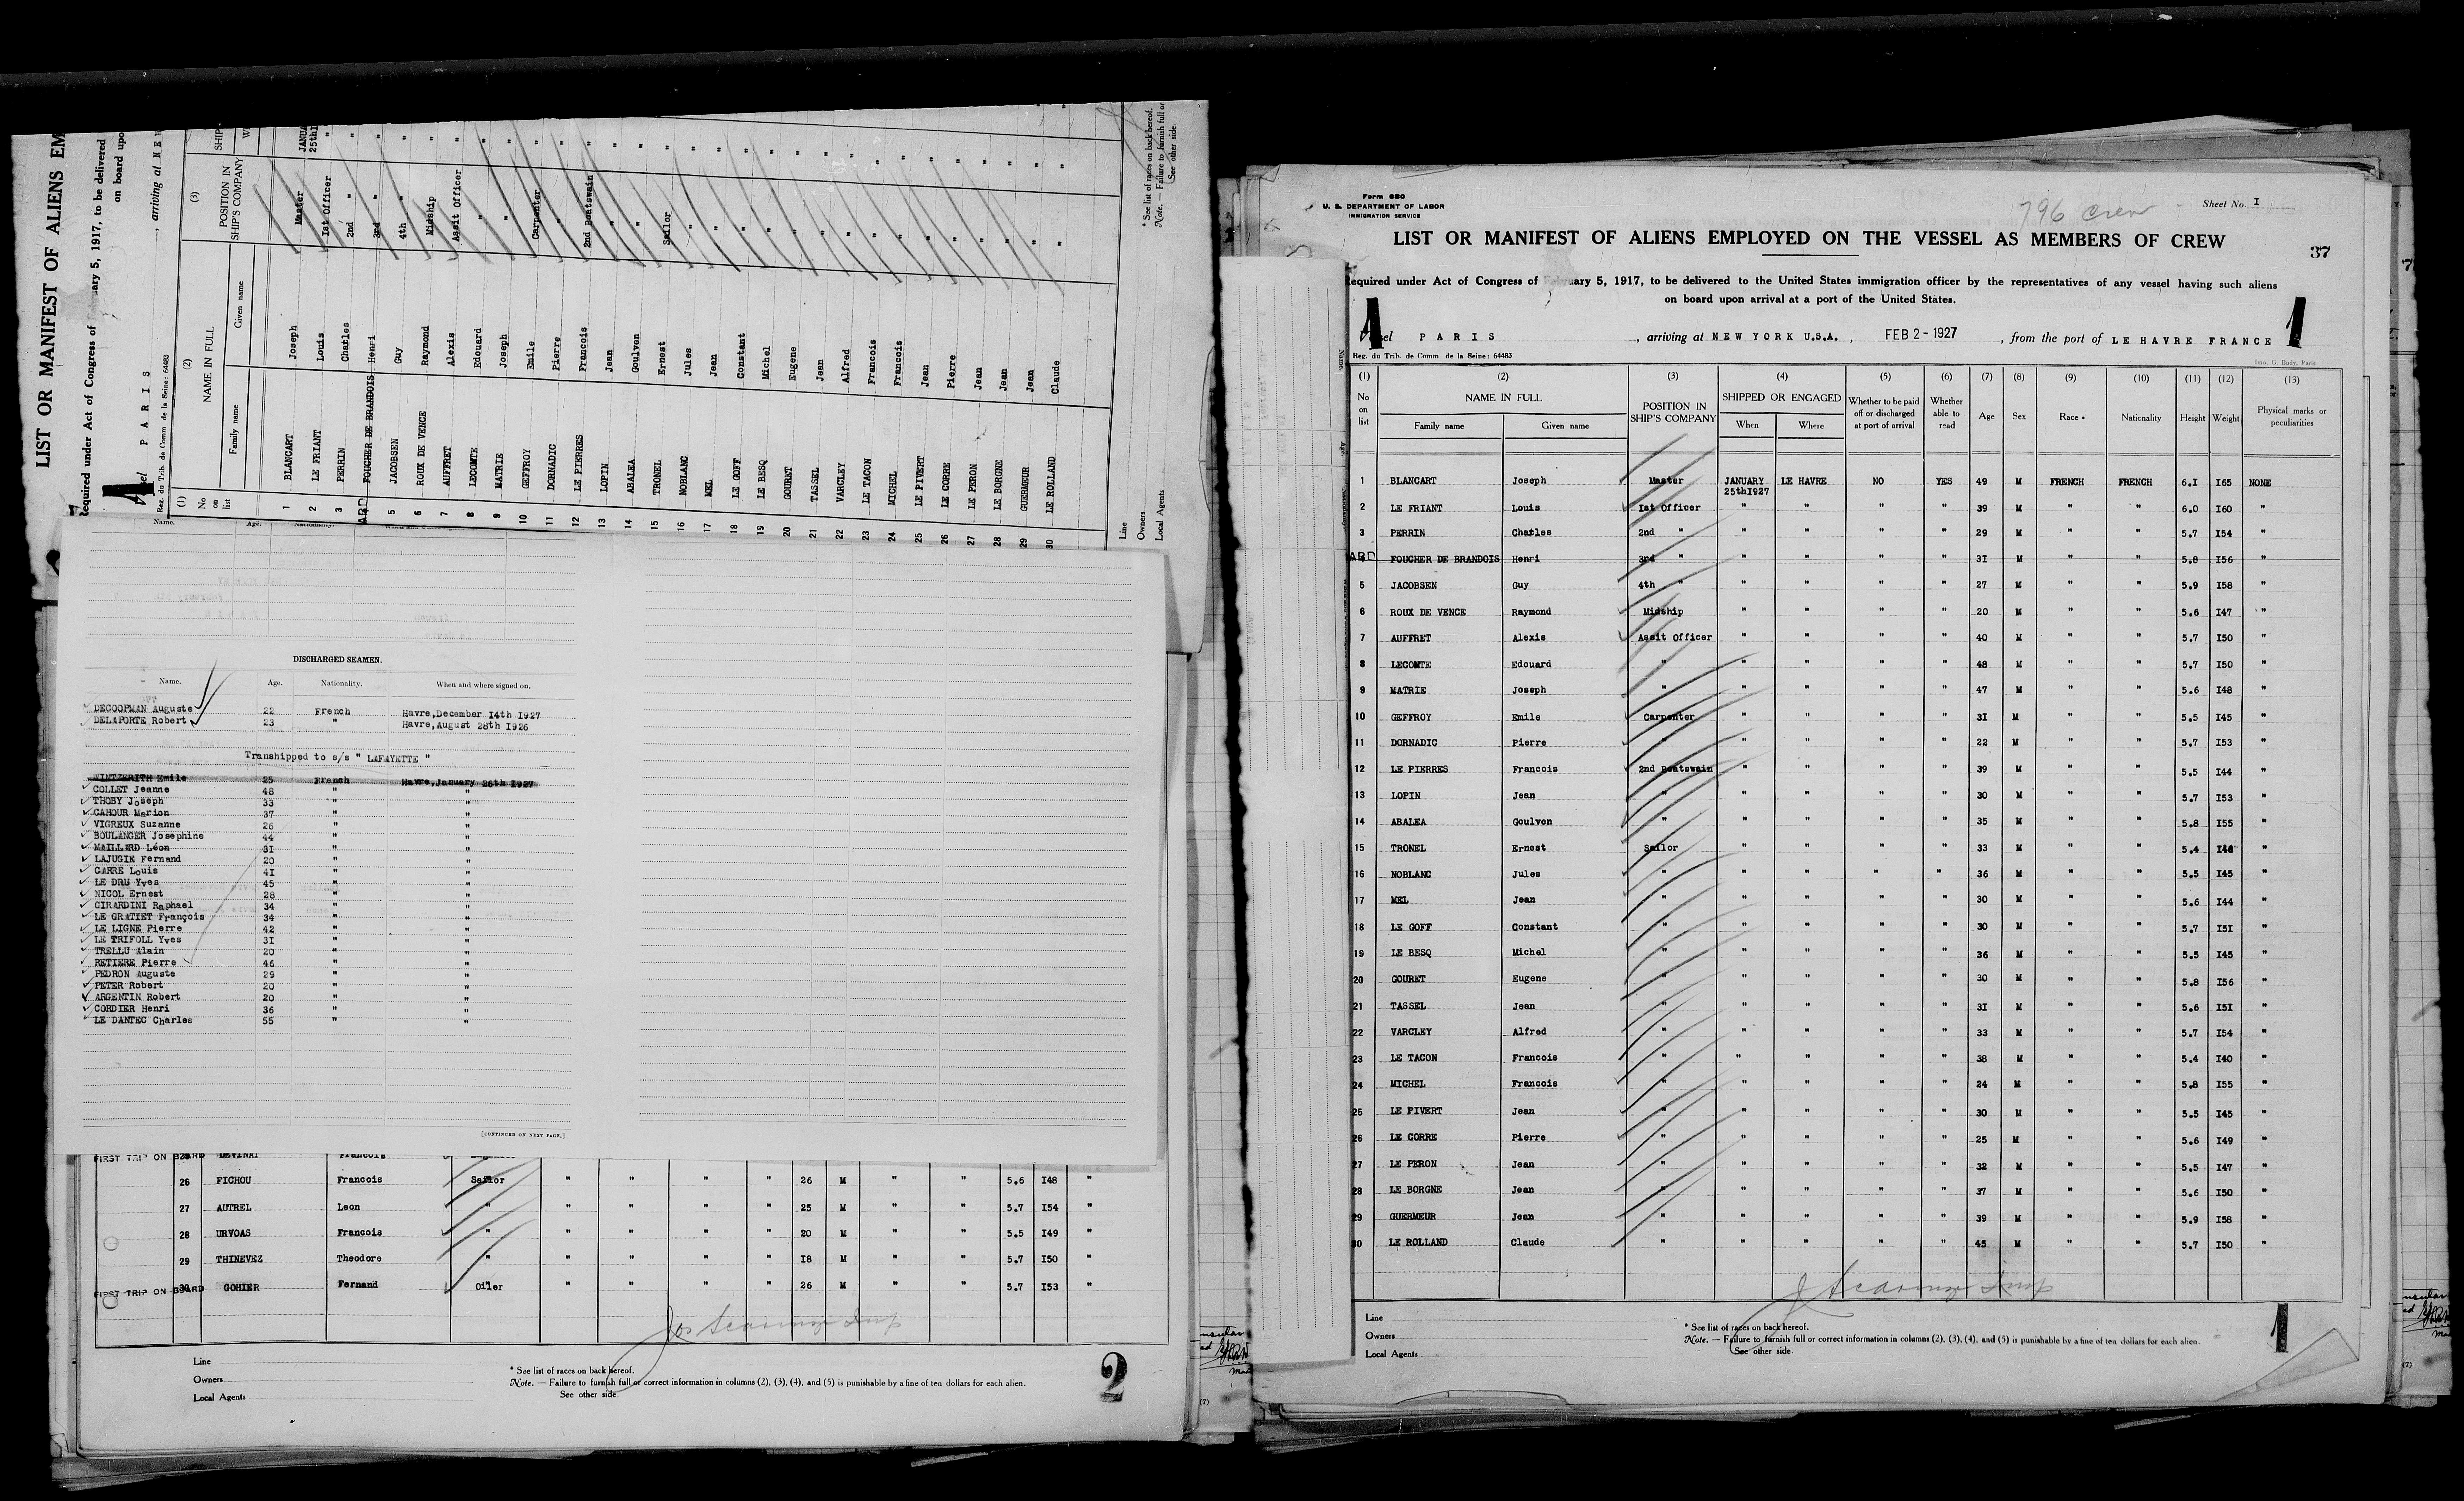 LIST OR MANIFEST OF ALIENS EM
Required under Act of Congress of ary 5, 1917, to be delivered
on board upo
el P A R I S , arriving at N E
Reg. du Trib. de Comm de la Seine: 64483
(1) (2) (3)
No on list NAME IN FULL POSITION IN SHIP'S COMPANY SHIP
Family name Given name W
1 BLANCART Joseph Master JANUA 25th1
2 LE FRIANT Louis Ist Officer "
3 PERRIN Charles 2nd " "
ARD FOUCHER DE BRANDOIS Henri 3rd " "
5 JACOBSEN Guy 4th " "
6 ROUX DE VENCE Raymond Midship "
7 AUFFRET Alexis Assit Officer "
8 LECOMTE Edouard " "
9 MATRIE Joseph " "
10 GEFFROY Emile Carpenter "
11 DORNADIC Pierre " "
12 LE PIERRES Francois 2nd Boatswain "
13 LOPIN Jean " "
14 ABALEA Goulven " "
15 TRONEL Ernest Sailor "
16 NOBLANC Jules " "
17 MEL Jean " "
18 LE GOFF Constant " "
19 LE BESQ Michel " "
20 GOURET Eugene " "
21 TASSEL Jean " "
22 VARCLEY Alfred " "
23 LE TACON Francois " "
24 MICHEL Francois " "
25 LE PIVERT Jean " "
26 LE CORRE Pierre " "
27 LE PERON Jean " "
28 LE BORGNE Jean " "
29 GUERMEUR Jean " "
30 LE ROLLAND Claude " "
Line
Owners
Local Agents
* See list of races on back hereof.
Note. — Failure to furnish full or
See other side.
Name. Age.
DISCHARGED SEAMEN.
Name. Age. Nationality. When and where signed on.
DECOOPMAN Auguste 22 French Havre,December I4th I927
DELAPORTE Robert 23 " Havre,August 28th I926
Transhipped to s/s " LAFAYETTE "
Emile 25 French Havre,January 26th I927
COLLET Jeanne 48 " "
THOBY Joseph 33 " "
CAHOUR Marion 37 " "
VIGREUX Suzanne 26 " "
BOULANGER Josephine 44 " "
MAILLARD Léon 3I " "
LAJUGIE Fernand 20 " "
CARRE Louis 4I " "
LE DRU Yves 45 " "
NICOL Ernest 28 " "
GIRARDINI Raphael 34 " "
LE GRATIET François 34 " "
LE LIGNE Pierre 42 " "
LE TRIFOLL Yves 3I " "
TRELLU Alain 20 " "
RETIERE Pierre 46 " "
PEDRON Auguste 29 " "
PETER Robert 20 " "
ARGENTIN Robert 20 " "
CORDIER Henri 36 " "
LE DANTEC Charles 55 " "
[CONTINUED ON NEXT PAGE.]
FIRST TRIP ON BOARD Francois
26 FICHOU Francois Sailor " " " " 26 M " " 5.6 I48 "
27 AUTREL Leon " " " " " 25 M " " 5.7 I54 "
28 URVOAS Francois " " " " " 20 M " " 5.5 I49 "
29 THINEVEZ Theodore " " " " " I8 M " " 5.7 I50 "
FIRST TRIP ON BOARD 30 GOHIER Fernand Oiler " " " " 26 M " " 5.7 I53 "
Line
Owners
Local Agents
* See list of races on back hereof.
Note. — Failure to furnish full or correct information in columns (2), (3), (4), and (5) is punishable by a fine of ten dollars for each alien.
See other side
2
Form 680
U. S. DEPARTMENT OF LABOR
IMMIGRATION SERVICE
796 crew
Sheet No. I
LIST OR MANIFEST OF ALIENS EMPLOYED ON THE VESSEL AS MEMBERS OF CREW
37
Required under Act of Congress of February 5, 1917, to be delivered to the United States immigration officer by the representatives of any vessel having such aliens
on board upon arrival at a port of the United States.
1 1
el P A R I S , arriving at NEW YORK U.S.A. , FEB 2 - 1927 , from the port of LE HAVRE FRANCE
Reg. du Trib. de Comm de la Seine: 64483
Imp. G. Body, Paris
(1) (2) (3) (4) (5) (6) (7) (8) (9) (10) (11) (12) (13)
No on list NAME IN FULL POSITION IN SHIP'S COMPANY SHIPPED OR ENGAGED Whether to be paid off or discharged at port of arrival Whether able to read Age Sex Race * Nationality Height Weight Physical marks or peculiarities
Family name Given name When Where
1 BLANCART Joseph Master JANUARY 25thI927 LE HAVRE NO YES 49 M FRENCH FRENCH 6.I I65 NONE
2 LE FRIANT Louis Ist Officer " " " " 39 M " " 6.0 I60 "
3 PERRIN Charles 2nd " " " " " 29 M " " 5.7 I54 "
ARD FOUCHER DE BRANDOIS Henri 3rd " " " " " 3I M " " 5.8 I56 "
5 JACOBSEN Guy 4th " " " " " 27 M " " 5.9 I58 "
6 ROUX DE VENCE Raymond Midship " " " " 20 M " " 5.6 I47 "
7 AUFFRET Alexis Assit Officer " " " " 40 M " " 5.7 I50 "
8 LECOMTE Edouard " " " " " 48 M " " 5.7 I50 "
9 MATRIE Joseph " " " " " 47 M " " 5.6 I48 "
10 GEFFROY Emile Carpenter " " " " 3I M " " 5.5 I45 "
11 DORNADIC Pierre " " " " " 22 M " " 5.7 I53 "
12 LE PIERRES Francois 2nd Boatswain " " " " 39 M " " 5.5 I44 "
13 LOPIN Jean " " " " " 30 M " " 5.7 I53 "
14 ABALEA Goulven " " " " " 35 M " " 5.8 I55 "
15 TRONEL Ernest Sailor " " " " 33 M " " 5.4 "
16 NOBLANC Jules " " " " " 36 M " " 5.5 I45 "
17 MEL Jean " " " " " 30 M " " 5.6 I44 "
18 LE GOFF Constant " " " " " 30 M " " 5.7 I5I "
19 LE BESQ Michel " " " " " 36 M " " 5.5 I45 "
20 GOURET Eugene " " " " " 30 M " " 5.8 I56 "
21 TASSEL Jean " " " " " 3I M " " 5.6 I5I "
22 VARCLEY Alfred " " " " " 33 M " " 5.7 I54 "
23 LE TACON Francois " " " " " 38 M " " 5.4 I40 "
24 MICHEL Francois " " " " " 24 M " " 5.8 I55 "
25 LE PIVERT Jean " " " " " 30 M " " 5.5 I45 "
26 LE CORRE Pierre " " " " " 25 M " " 5.6 I49 "
27 LE PERON Jean " " " " " 32 M " " 5.5 I47 "
28 LE BORGNE Jean " " " " " 37 M " " 5.6 I50 "
29 GUERMEUR Jean " " " " " 39 M " " 5.9 I58 "
30 LE ROLLAND Claude " " " " " 45 M " " 5.7 I50 "
Line
Owners
Local Agents
* See list of races on back hereof.
Note. — Failure to furnish full or correct information in columns (2), (3), (4), and (5) is punishable by a fine of ten dollars for each alien.
See other side.
1